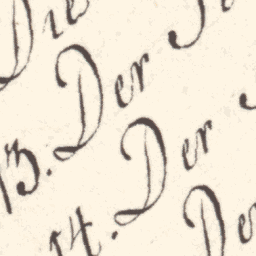 Die
13. Der
14. Der
Der